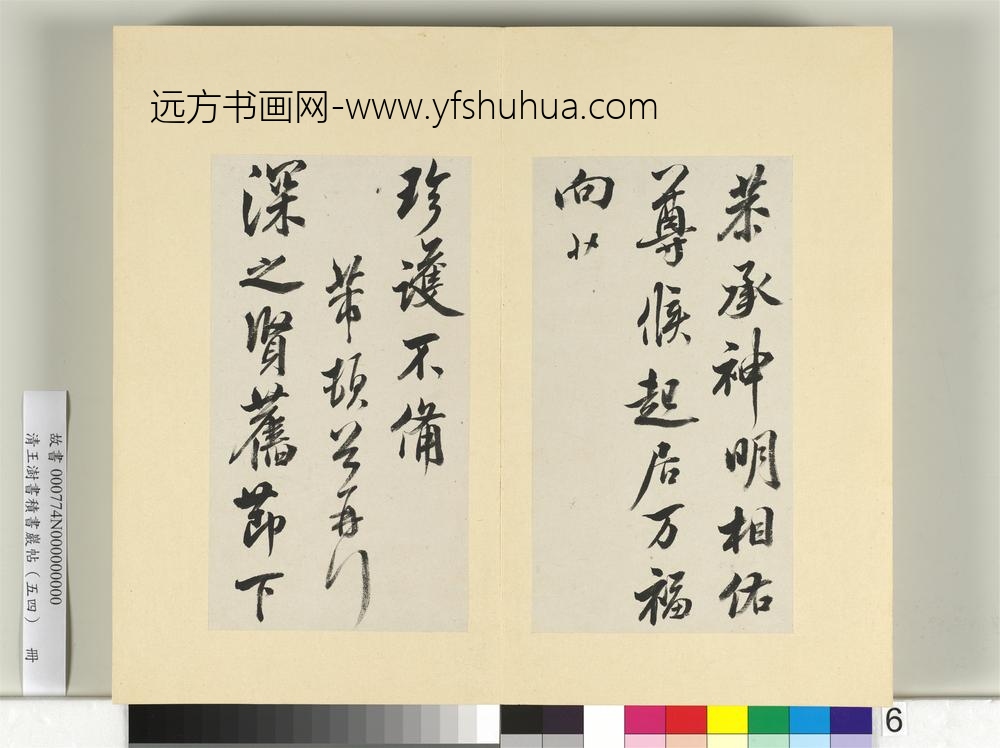 远方书画网-www.yfshuhua.com
恭承神明相佑
尊候起居万福
向
珍護不備
芾頓首再拜
深之賢舊節下
故書 000774N000000000
清王澍書積書巖帖（五四） 冊
6